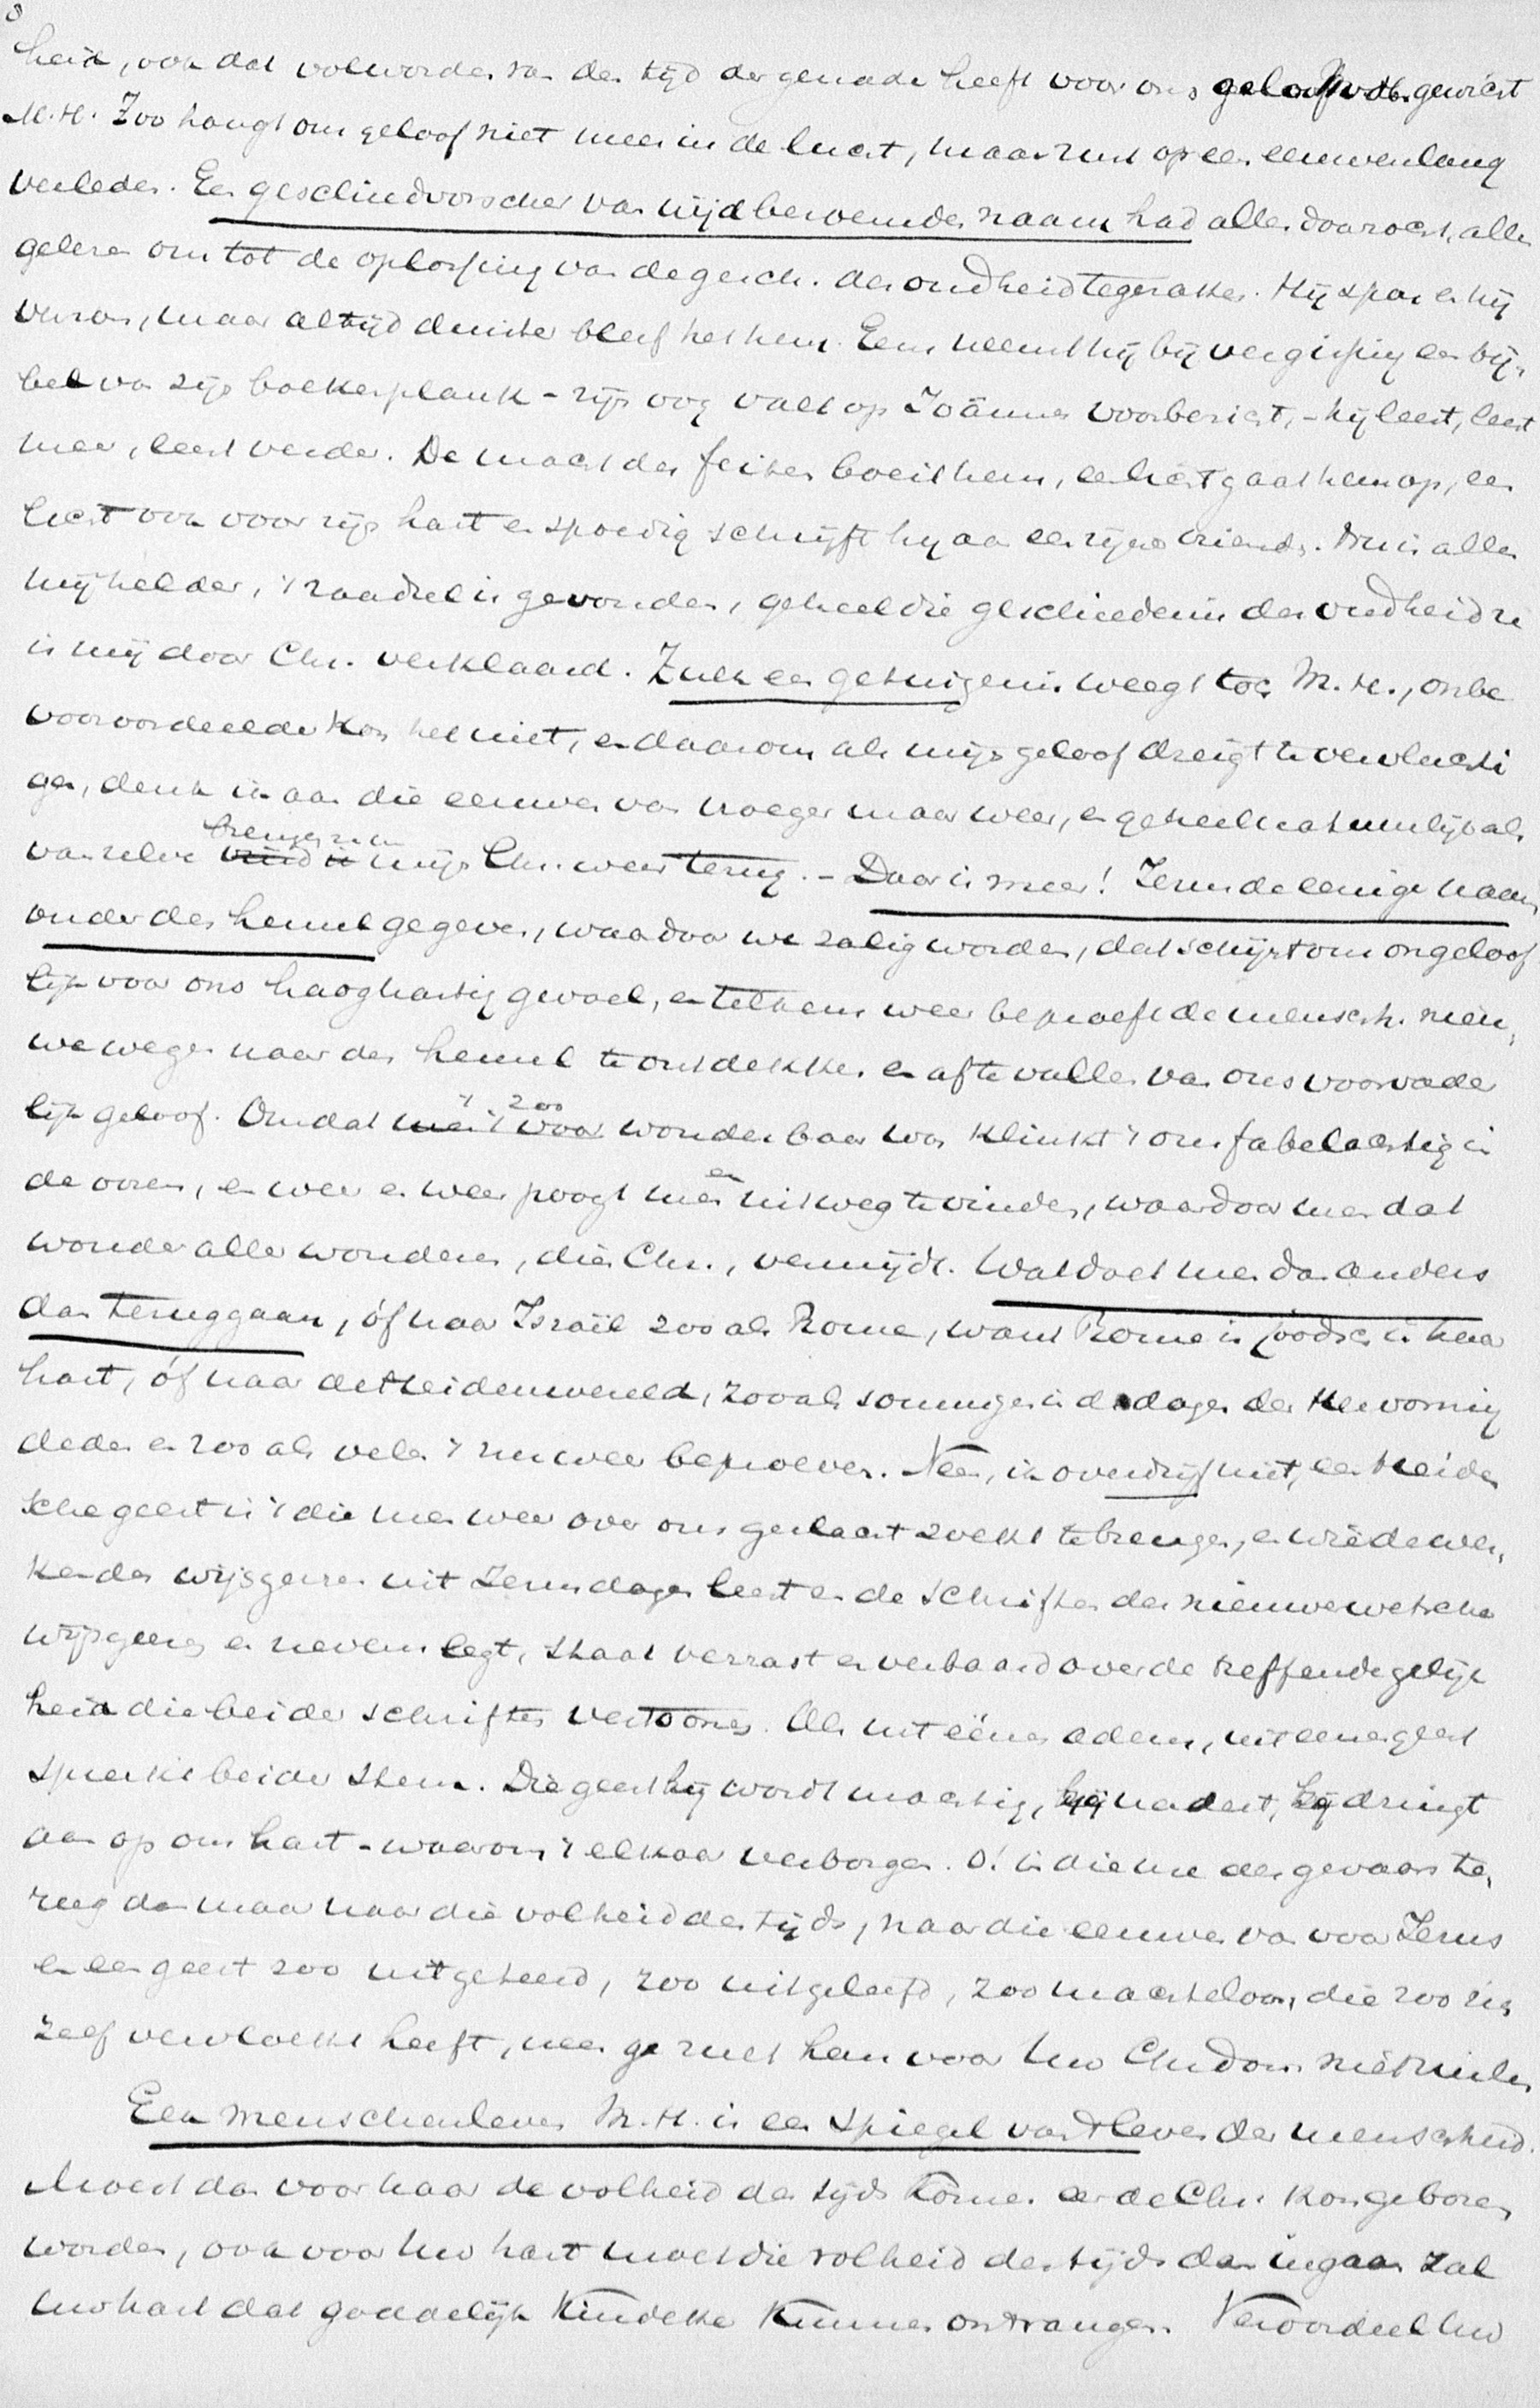 8
heid, ook dat volworden van den tijd der genade heeft voor ons geloof gewicht
M.H. Zoo hangt ons geloof niet meer in de lucht, maar rust op een eeuwenlang
verleden. Een geschiedvorscher van wijdberoemden naam had alles doorzocht, alles
gelezen om tot de oplossing van de gesch. der oudheid te geraken. Hij span en hij
, maar altijd duister bleef het hem. Eens neemt hij bij vergissing een bij,
bel van zijn boekenplank - zijn oog valt op Joännes voorbericht, - hij leest, leest
meer, leest verder. De macht der feiten boeit hem, een licht gaat hem op, een
licht ook voor zijn hart en spoedig schrijft hij aan een zijner vrienden. Nu is alles
mij helder, 't raadsel is gevonden, geheel die geschiedenis der oudheid
is mij door Chr. verklaard. Zulk een getuigenis weegt toch M.H., onbe
vooroordeelder kon het niet, en daarom als mijn geloof dreigt te vervluchti
gen, denk ik aan die eeuwen van vroeger maar weer, en geheel natuurlijk als
van zelve brengen ze mijn Chr. weer terug. - Daar is meer! Jezus de eenige naam
onder den hemel gegeven, waardoor we zalig worden, dat schijnt ons ongeloof
lijk voor ons hooghartig gevoel, en telkens weer beproeft de mensch. nieu,
we wegen naar den hemel te ontdekken en af te vallen van ons voorvader
lijk geloof. Omdat 't zoo wonderbaar was klinkt 't ons fabelachtig in
de ooren, en weer en weer poogt men een uitweg te vinden, waardoor men dat
wonder aller wonderen, die Chr., vermijdt. Wat doet men dan anders
dan teruggaan, óf naar Israël zooals Rome, want Rome is joodsch in haar
hart, óf naar de Heidenwereld, zooals sommigen in de dagen der Hervorming
deden en zooals velen 't nu weer beproeven. Neen, ik overdrijf niet, een heiden
sche geest is 't die men weer over ons geslacht zoekt te brengen, en wie de wer,
ken der wijsgeeren uit Jezus dagen leest en de schriften der nieuwerwetsche
wijsgeeren er nevens legt, staat verrast en verbaasd over de treffende gelijk
heid die beider schriften vertoonen. Als uit éénen adem, uit eenen geest
spreekt beider stem. Die geest hij wordt machtig, hij nadert, hij dringt
aan op ons hart - waarom 't elkaar verborgen. O! in die ure des gevaars te,
rug dan maar naar die volheid des tijds, naar die eeuwen van voor Jezus
en een geest zoo uitgeteerd, zoo uitgeleefd, zoo machteloos, die zoo zich
zelf vervloekt heeft, neen ge zult hem voor Uw Chrdom niet ruilen
Een menschenleven M.H. is een spiegel van 't leven der menschheid.
Moest dan voor haar de volheid des tijds komen eer de Chr. kon geboren
worden, ook voor Uw hart moet die volheid des tijds dan ingaan zal
Uw hart dat goddelijk Kindeke kunnen ontvangen. Veroordeel Uw